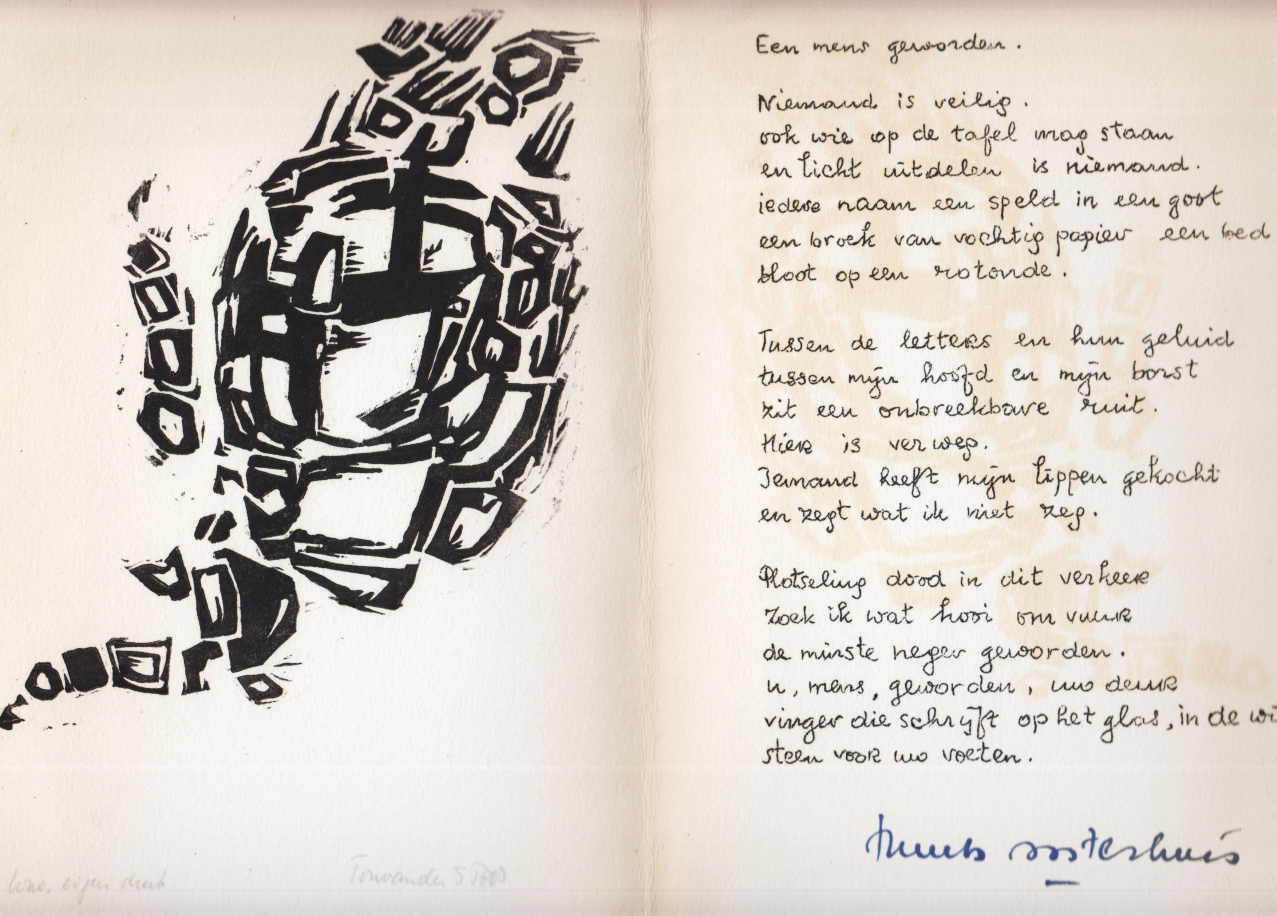 Een mens geworden.
Niemand is veilig.
ook wie op de tafel mag staan
en licht uitdelen is niemand.
iedere naam een speld in een goot
een broek van vochtig papier een bed
bloot op een rotonde.
Tussen de letters en hun geluid
tussen mijn hoofd en mijn borst
zit een onbreekbare ruit.
Hier is ver weg.
Iemand heeft mijn lippen gekocht
en zegt wat ik niet zeg.
Plotseling dood in dit verkeer
zoek ik wat hooi om vuur
de minste neger geworden.
u, mens, geworden, uw deur
vinger die schrijft op het glas, in de wi
steen voor uw voeten.
huub oosterhuis
lino, eigen druk